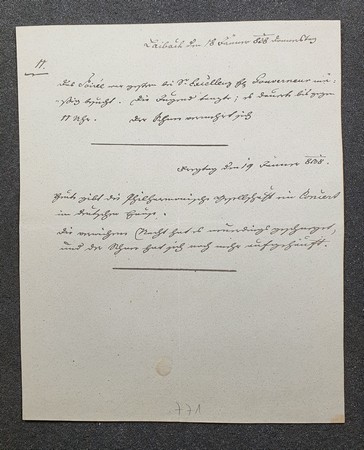 Laibach den 18 Jänner 838 Donnerstag
11.
Das Soirée war gestern bei Sr Exzellenz H Gouverneur mä-
ßig besucht. Die Jugend tanzte; es dauerte bis gegen
11 Uhr. Der Schnee vermehrt sich
Freytag den 19 Jänner 838.
Heute gibt die Philharmonische Gesellschaft ein Concert
im deutschen Hause.
Die verwichene Nacht hat es neuerdings geschneyet,
und der Schnee hat sich noch mehr aufgehäuft.
771